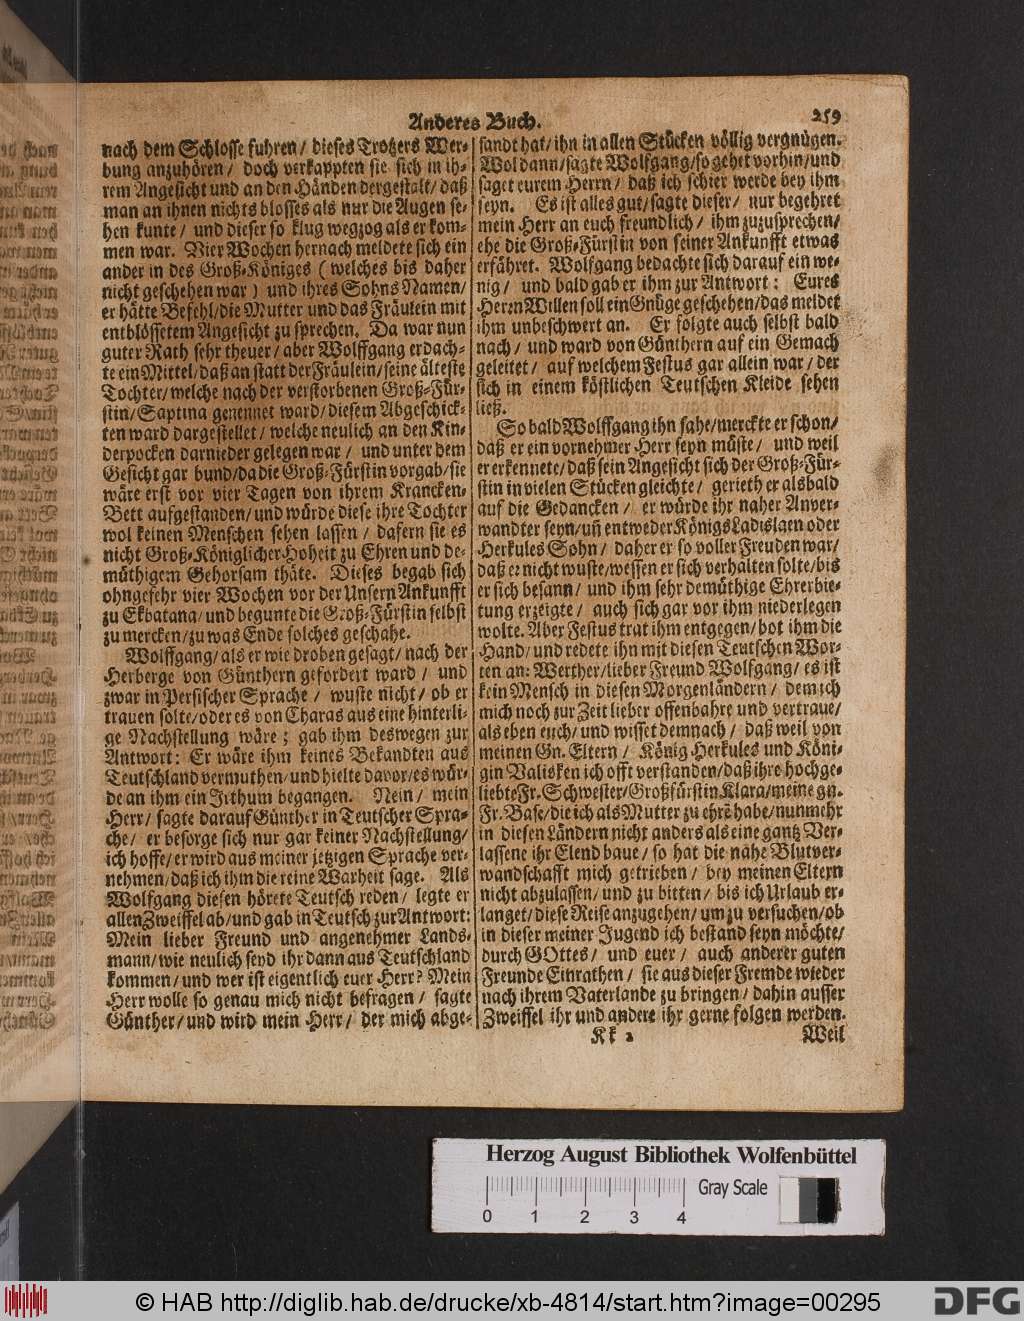 Anderes Buch.
259
nach dem Schlosse fuhren / dieses Trotzers Wer-
bung anzuhören / doch verkappten sie sich in ih-
rem Angesicht und an den Händen dergestalt / daß
man an ihnen nichts blosses als nur die Augen se-
hen kunte / und dieser so klug wegzog als er kom-
men war. Vier Wochen hernach meldete sich ein
ander in des Groß-Königes ( welches bis daher
nicht geschehen war ) und ihres Sohns Namen /
er hätte Befehl / die Mutter und das Fräulein mit
entblössetem Angesicht zu sprechen. Da war nun
guter Rath sehr theuer / aber Wolffgang erdach-
te ein Mittel / daß an statt der Fräulein / seine älteste
Tochter / welche nach der verstorbenen Groß-Für-
stin / Saptina genennet ward / diesem Abgeschick-
ten ward dargestellet / welche neulich an den Kin-
derpocken darnieder gelegen war / und unter dem
Gesicht gar bund / da die Groß-Fürstin vorgab / sie
wäre erst vor vier Tagen von ihrem Krancken-
Bett aufgestanden / und würde diese ihre Tochter
wol keinen Menschen sehen lassen / dafern sie es
nicht Groß-Königlicher Hoheit zu Ehren und de-
müthigem Gehorsam thäte. Dieses begab sich
ohngefehr vier Wochen vor der Unsern Ankunfft
zu Ekbatana / und begunte die Groß-Fürstin selbst
zu mercken / zu was Ende solches geschahe.
Wolffgang / als er wie droben gesagt / nach der
Herberge von Günthern gefordert ward / und
zwar in Persischer Sprache / wuste nicht / ob er
trauen solte / oder es von Charas aus eine hinterli-
ge Nachstellung wäre ; gab ihm deswegen zur
Antwort : Er wäre ihm keines Bekandten aus
Teutschland vermuthen / und hielte davor / es wür-
de an ihm ein Irthum begangen. Nein / mein
Herr / sagte darauf Günther in Teutscher Spra-
che / er besorge sich nur gar keiner Nachstellung /
ich hoffe / er wird aus meiner jetzigen Sprache ver-
nehmen / daß ich ihm die reine Warheit sage. Als
Wolfgang diesen hörete Teutsch reden / legte er
allen Zweiffel ab / und gab in Teutsch zur Antwort :
Mein lieber Freund und angenehmer Lands-
mann / wie neulich seyd ihr dann aus Teutschland
kommen / und wer ist eigentlich euer Herr ? Mein
Herr wolle so genau mich nicht befragen / sagte
Günther / und wird mein Herr / der mich abge-
sandt hat / ihn in allen Stücken völlig vergnügen.
Wol dann / sagte Wolfgang / so gehet vorhin / und
saget eurem Herrn / daß ich schier werde bey ihm
seyn. Es ist alles gut / sagte dieser / nur begehret
mein Herr an euch freundlich / ihm zuzusprechen /
ehe die Groß-Fürstin von seiner Ankunfft etwas
erfähret. Wolfgang bedachte sich darauf ein we-
nig / und bald gab er ihm zur Antwort : Eures
Herrn Willen soll ein Gnüge geschehen / das meldet
ihm unbeschwert an. Er folgte auch selbst bald
nach / und ward von Günthern auf ein Gemach
geleitet / auf welchem Festus gar allein war / der
sich in einem köstlichen Teutschen Kleide sehen
ließ.
So bald Wolffgang ihn sahe / merckte er schon /
daß er ein vornehmer Herr seyn müste / und weil
er erkennete / daß sein Angesicht sich der Groß-Für-
stin in vielen Stücken gleichte / gerieth er alsbald
auf die Gedancken / er würde ihr naher Anver-
wandter seyn / uñ entweder Königs Ladislaen oder
Herkules Sohn / daher er so voller Freuden war /
daß er nicht wuste / wessen er sich verhalten solte / bis
er sich besann / und ihm sehr demüthige Ehrerbie-
tung erzeigte / auch sich gar vor ihm niederlegen
wolte. Aber Festus trat ihm entgegen / bot ihm die
Hand / und redete ihn mit diesen Teutschen Wor-
ten an : Werther / lieber Freund Wolfgang / es ist
kein Mensch in diesen Morgenländern / dem ich
mich noch zur Zeit lieber offenbahre und vertraue /
als eben euch / und wisset demnach / daß weil von
meinen Gn. Eltern / König Herkules und Köni-
gin Valisken ich offt verstanden / daß ihre hochge-
liebte Fr. Schwester / Großfürstin Klara / meine gn.
Fr. Base / die ich als Mutter zu ehrẽ habe / nunmehr
in diesen Ländern nicht anders als eine gantz Ver-
lassene ihr Elend baue / so hat die nahe Blutver-
wandschafft mich getrieben / bey meinen Eltern
nicht abzulassen / und zu bitten / bis ich Urlaub er-
langet / diese Reise anzugehen / um zu versuchen / ob
in dieser meiner Jugend ich bestand seyn möchte /
durch GOttes / und euer / auch anderer guten
Freunde Einrathen / sie aus dieser Fremde wieder
nach ihrem Vaterlande zu bringen / dahin ausser
Zweiffel ihr und andere ihr gerne folgen werden.
Kk 2
Weil
Herzog August Bibliothek Wolfenbüttel
Gray Scale
0 1 2 3 4
© HAB http://diglib.hab.de/drucke/xb-4814/start.htm?image=00295
DFG